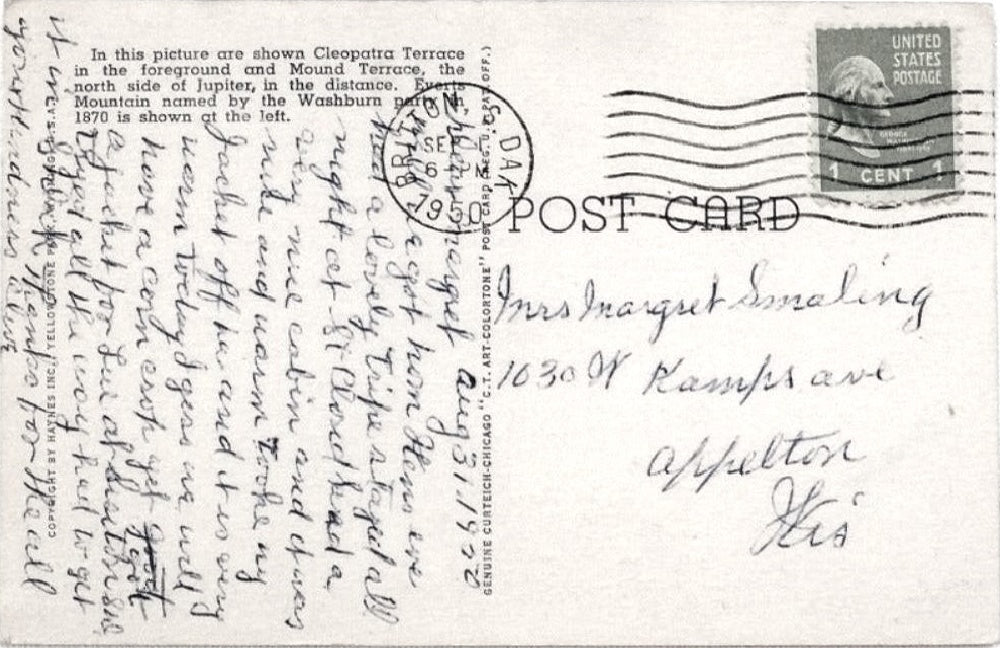 In this picture are shown Cleopatra Terrace
in the foreground and Mound Terrace, the
north side of Jupiter, in the distance. Everts
Mountain named by the Washburn party in
1870 is shown at the left.
UNITED
STATES
POSTAGE
1 CENT 1
S. DAK
SEP
6 PM
1950
POST CARD
Mrs Margret Smaling
1030 W Kamps ave
Appelton
Wis
GENUINE CURTEICH-CHICAGO "C.T. ART-COLORTONE" POST CARD (REG. U.S. PAT. OFF.)
COPYRIGHT BY HAYNES INC., YELLOWSTONE
aug 31 1950
Margret
got hom Hens eve
had a lovely Tripe staged all
night at St Cloud had a
very nice cabin and it was
nice and warm Tooke my
Jacket off hu and it is very
warm Today I gess we will
have a corn crop yet I got
a jacket for Lue at
I liyed all the way had to get
it in
Thanks for the all
your kindness